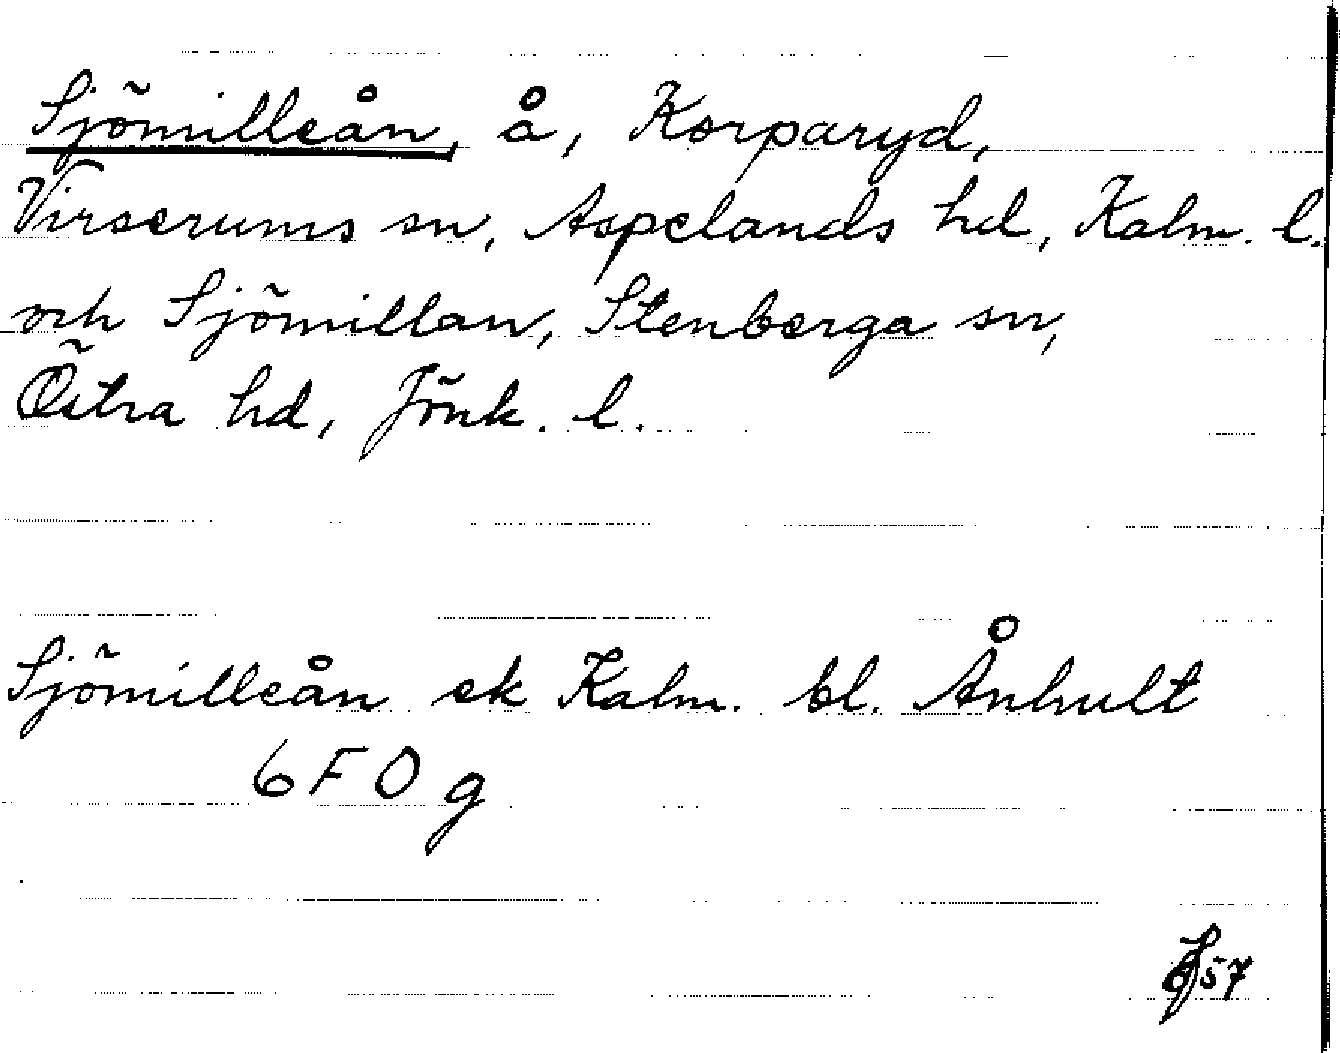 Sjömilleån, å, Korparyd,
Virserums sn, Aspelands hd, Kalm. l.
och Sjömillan, Stenberga sn,
Östra hd, Jönk. l.
Sjömilleån ek Kalm. bl. Ånhult
6 F O g
57